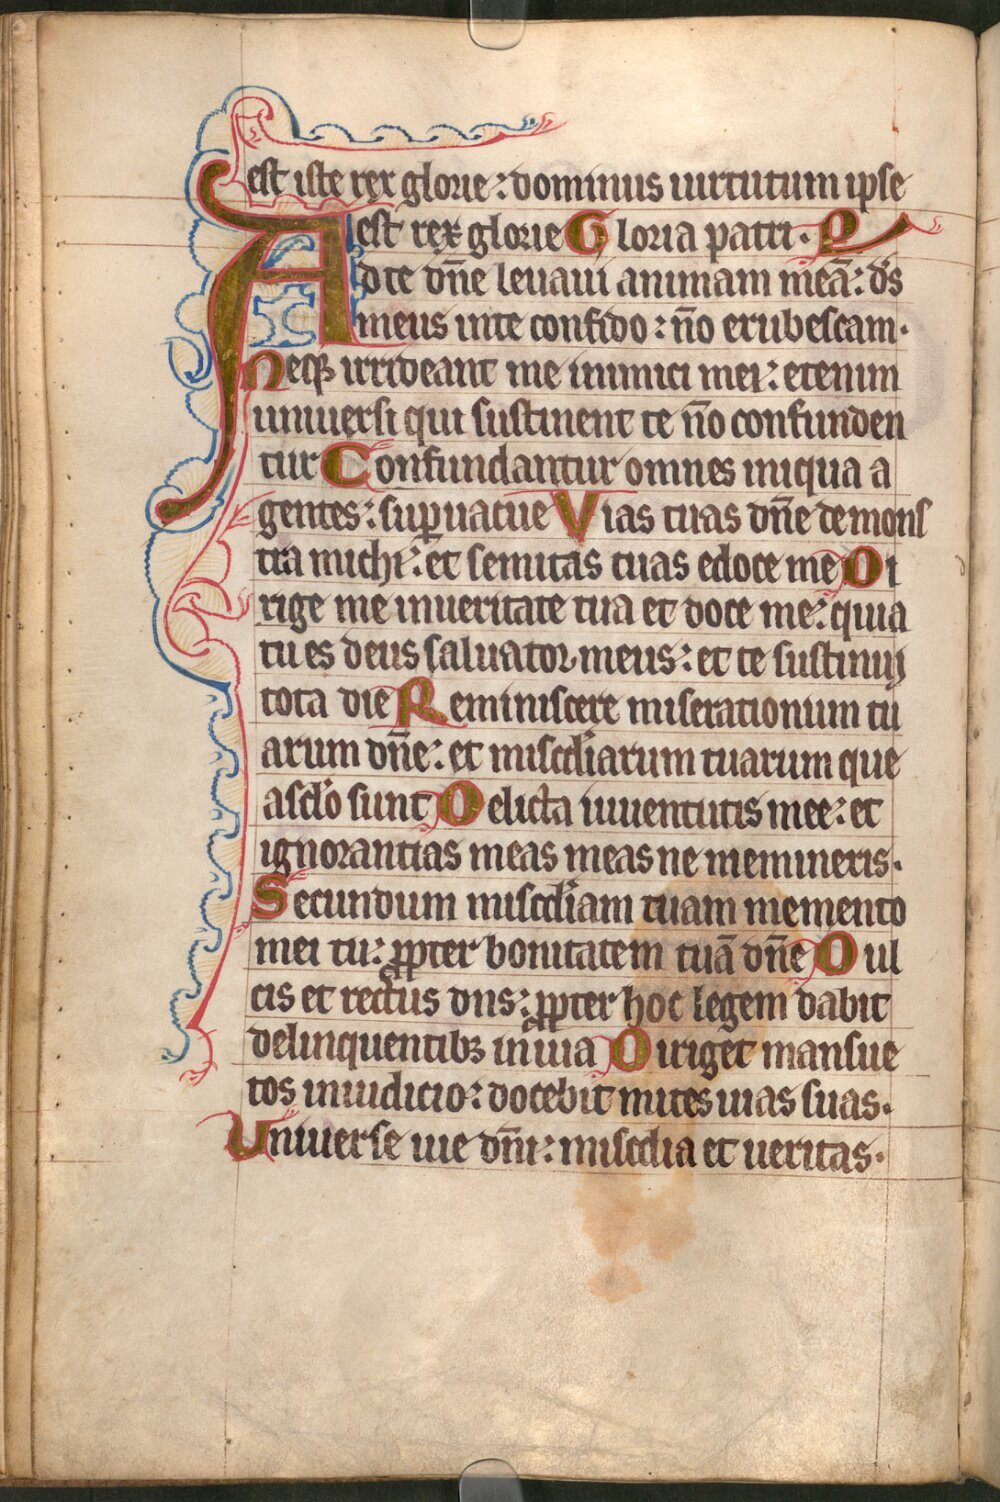 est iste rex glorie: dominus uirtutum ipse
est rex glorie Gloria patri. P
Ad te dn̄e leuaui animam meā: ds̄
meus in te confido: n̄o erubescam.
Neq; irrideant me inimici mei: etenim
uniuersi qui sustinent te n̄o confunden
tur Confundantur omnes iniqua a
gentes: sup̱uacue Vias tuas dn̄e demons
tra michi: et semitas tuas edoce me Di
rige me in ueritate tua et doce me: quia
tu es deus saluator meus: et te sustinui
tota die Reminiscere miserationum tu
arum dn̄e: et misc̄diarum tuarum que
a sc̄lo sunt Delicta iuuentutis mee: et
ignorantias meas meas ne memineris.
Secundum misc̄diam tuam memento
mei tu: ꝓpter bonitatem tuā dn̄e Dul
cis et rectus dns: ꝓpter hoc legem dabit
delinquentibꝫ in uia Diriget mansue
tos in iudicio: docebit mites uias suas.
Uniuerse uie dn̄i: misc̄dia et ueritas.